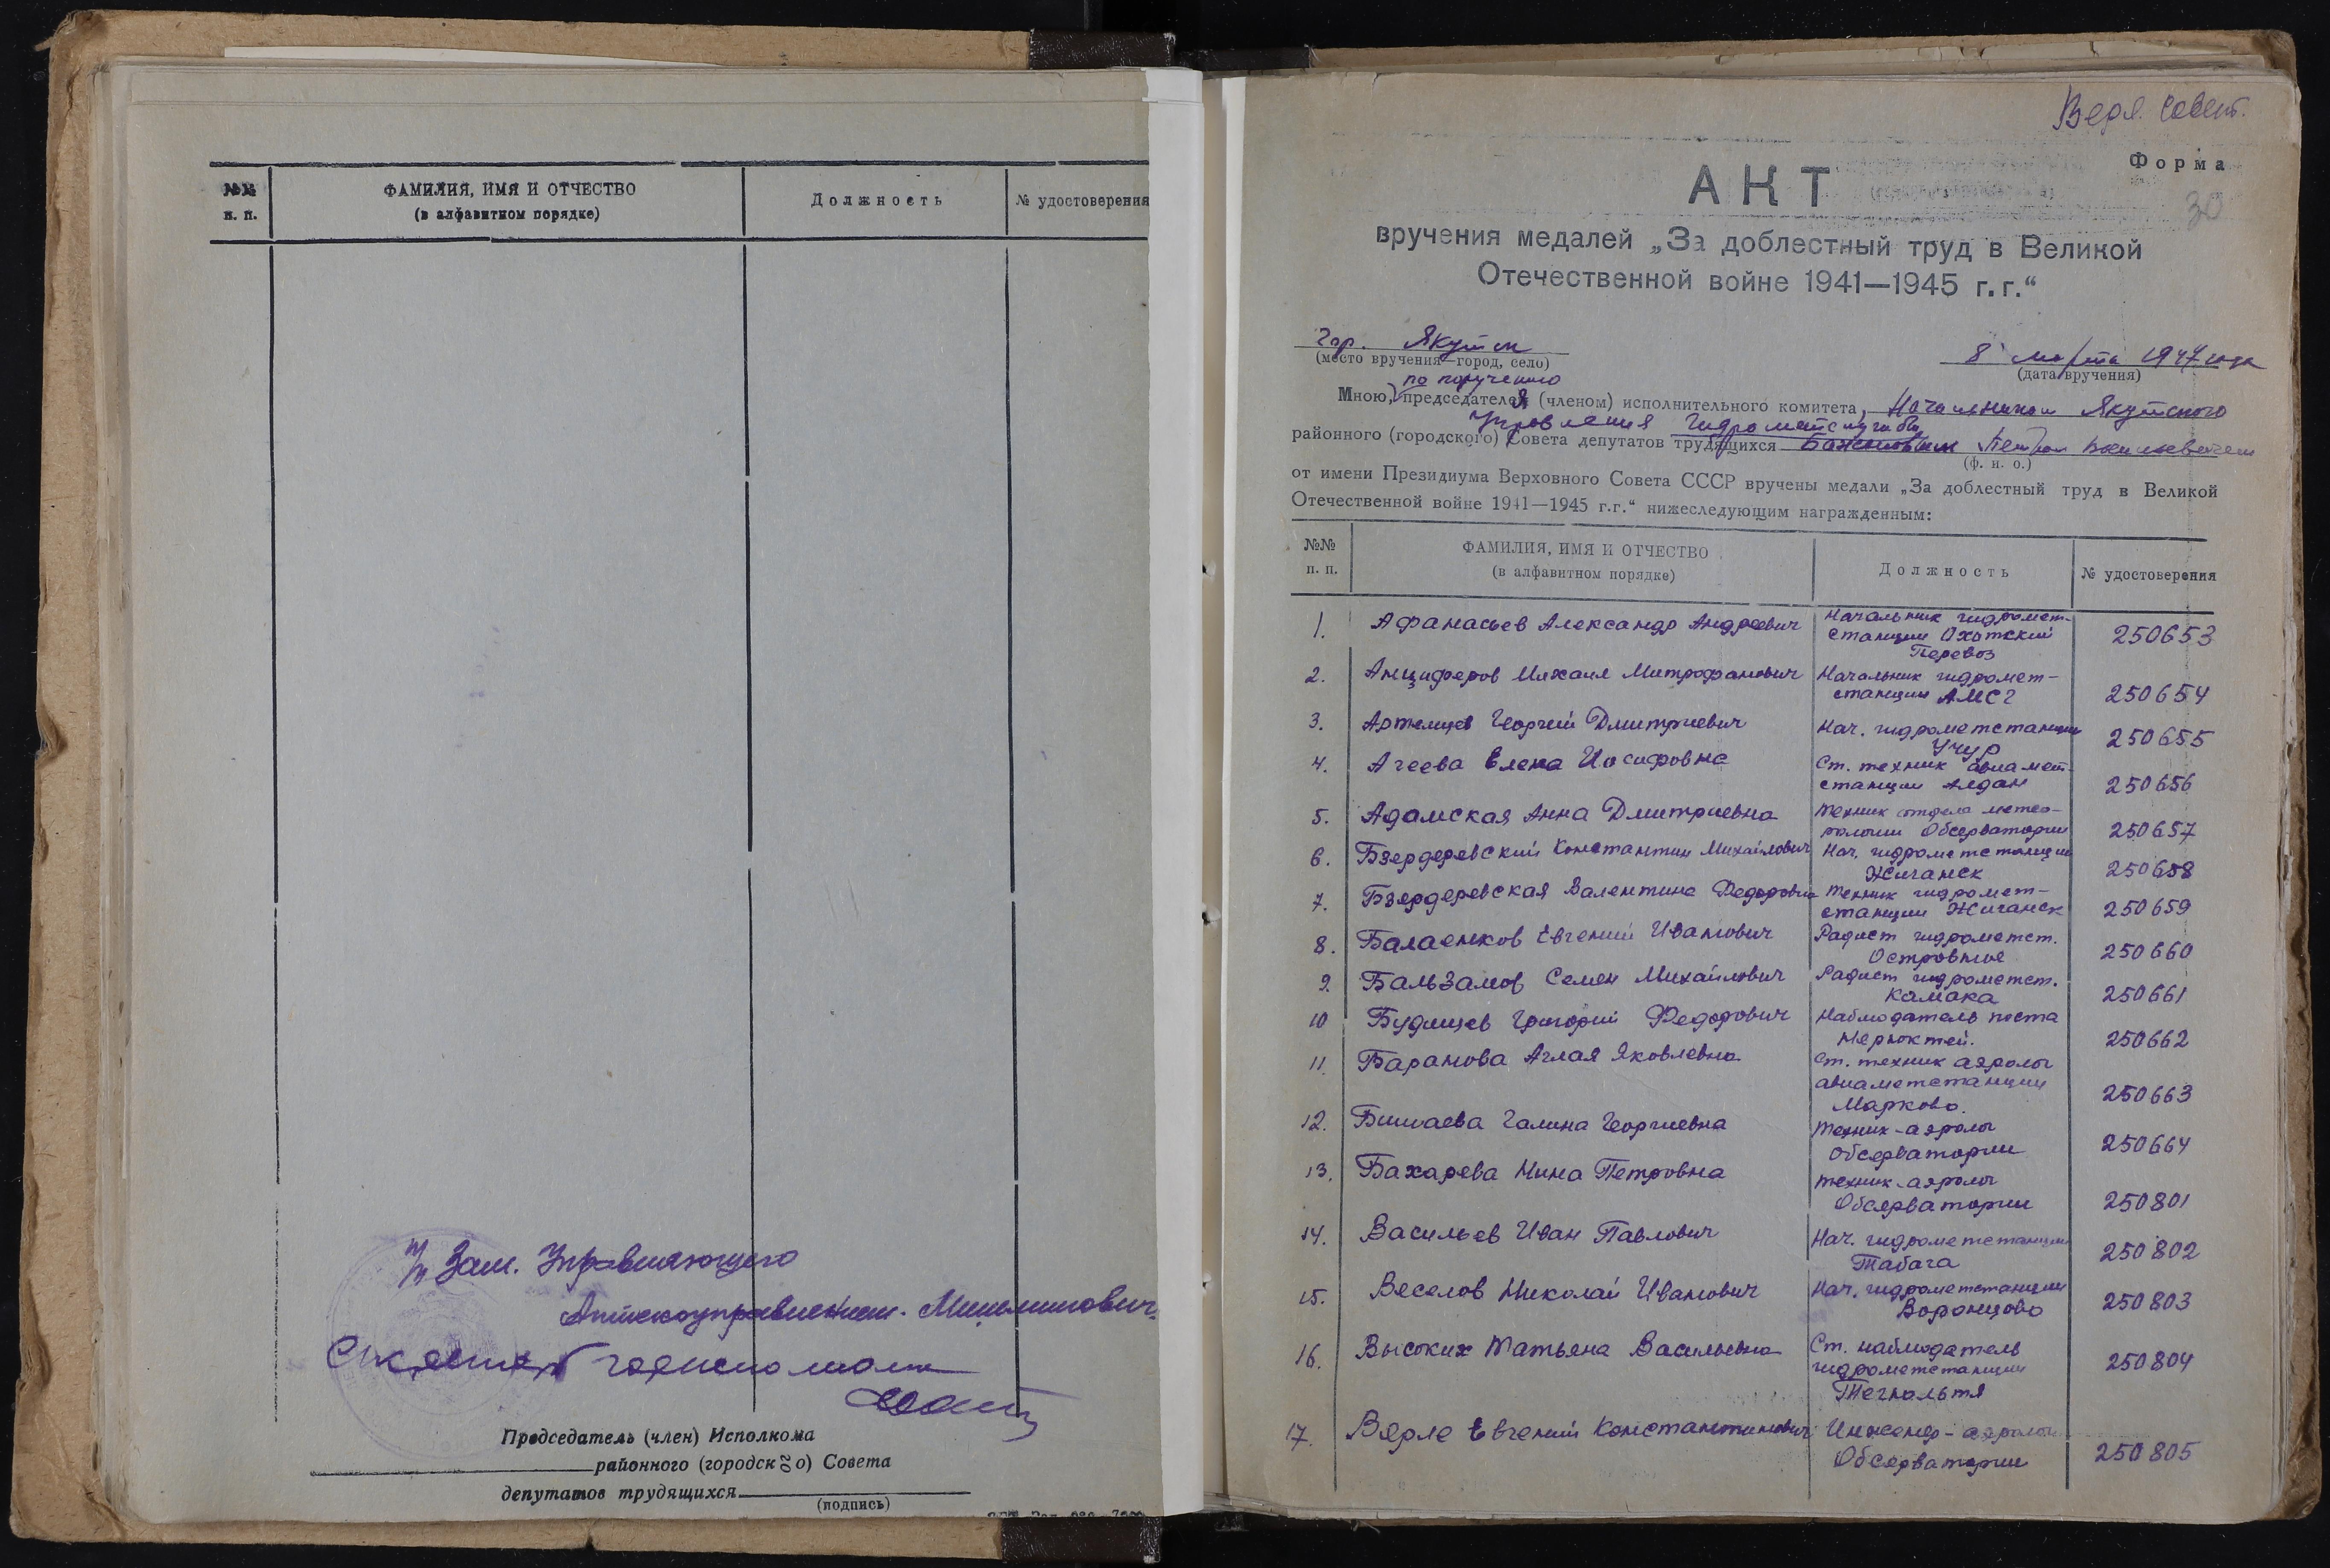 №№
п. п.
ФАМИЛИЯ, ИМЯ И ОТЧЕСТВО
(в алфавитном порядке)
Должность
№ удостоверения
Зам. Управляющего
Аптекоуправлением
Председатель (член) Исполкома
районного (городского) Совета
депутатов трудящихся
(подпись)
Верх. Совет.
Форма
30
АКТ
вручения медалей „За доблестный труд в Великой
Отечественной войне 1941—1945 г.г.“
гор. Якутск
(место вручения—город, село)
8 марта 1947 года
(дата вручения)
по поручению
Мною, председателя (членом) исполнительного комитета, Начальником Якутского
Управления Гидрометслужбы
районного (городского) Совета депутатов трудящихся Баженовым Петром
(ф. и. о.)
от имени Президиума Верховного Совета СССР вручены медали „За доблестный труд в Великой
Отечественной войне 1941—1945 г.г.“ нижеследующим награжденным:
№№
п. п.
ФАМИЛИЯ, ИМЯ И ОТЧЕСТВО
(в алфавитном порядке)
Должность
№ удостоверения
1. Афанасьев Александр Андреевич Начальник гидромет-
станции Охотский
Перевоз
250653
2. Анциферов Михаил Митрофанович Начальник гидромет-
станции АМСГ
250654
3. Артемцев Георгий Дмитриевич Нач. гидрометстанции
Учур
250655
4. Агеева Елена Иосифовна Ст. техник авиамет-
станции Алдан
250656
5. Адамская Анна Дмитриевна Техник отдела метео-
рологии Обсерватории
250657
6. Бзердеревский Константин Михайлович Нач. гидрометстанции
Жиганск
250658
7. Бзердеревская Валентина Федоровна Техник гидромет-
станции Жиганск
250659
8. Балаенков Евгений Иванович Радист гидрометст.
Островное
250660
9. Бальзамов Семен Михайлович Радист гидрометст.
Хамака
250661
10 Будищев Григорий Федорович Наблюдатель поста
Нерюктей.
250662
11. Баранова Аглая Яковлевна Ст. техник аэролог
авиаметстанции
Марково.
250663
12. Бишаева Галина Георгиевна Техник-аэролог
Обсерватории
250664
13. Бахарева Нина Петровна техник-аэролог
Обсерватории
250801
14. Васильев Иван Павлович Нач. гидрометстанции
Табага
250802
15. Веселов Николай Иванович Нач. гидрометстанции
Воронцово
250803
16. Высоких Татьяна Васильевна Ст. наблюдатель
гидрометстанции
Тегюльтя
250804
17. Верле Евгений Константинович Инженер-аэролог
Обсерватории
250805